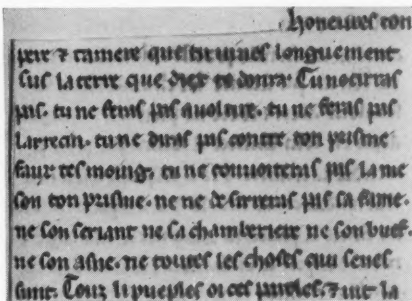 honeures ton
pere ⁊ ta mere que tu uiues longuement
sus la terre que diex te donra· Tu nociras
pas· tu ne feras pas auoltire· tu ne feras pas
larrecin· tu ne diras pas contre ton prisme
faux tesmoing· tu ne couuoiteras pas la me
son ton prisme· ne ne desirreras pas sa fame·
ne son seriant ne sa chamberiere ne son buef·
ne son asne· ne toutes les choses qui seues
sunt· Touz li pueples oi ces paroles· ⁊ uit la